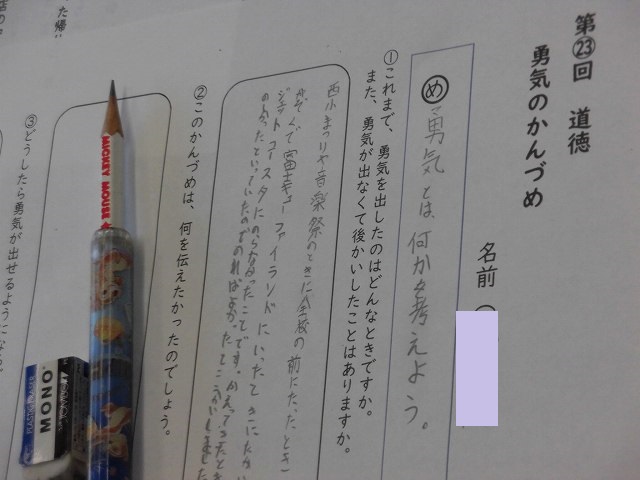 第㉓回 道徳
勇気のかんづめ
名前
め 勇気とは、何か考えよう。
①これまで、勇気を出したのはどんなときですか。
また、勇気が出なくて後かいしたことはありますか。
西小まつりや音楽祭のときに全校の前にたったとき
かぞくで富士キューファイランドにいったときに
ジェットコースタにのらなかったことです。かえってきたとき
のたかったといっていたのでのればよかったとこうかいしました
②このかんづめは、何を伝えたかったのでしょう。
③どうしたら勇気が出せるようになる
た帰い
MICKEY MOUSE
MONO
PLASTIC